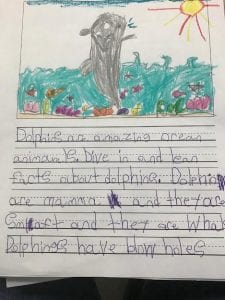 Dolphis are amazing ocean
animals. Dive in and lean
facts about dolphins. Dolphins
are mamma and they are
smart and they are Whals
Dolphings have blow holes